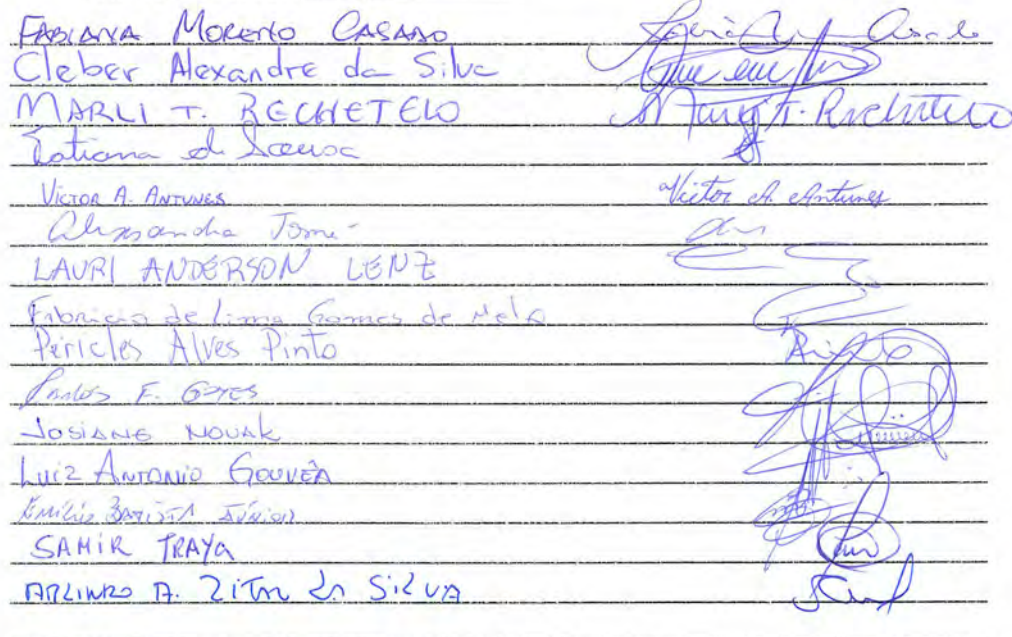 FABIANA MORENO CASADO
Cleber Alexandre da Silva
MARLI T. RECHETELO Marly T. Rechetelo
Tatiana de Sousa
VICTOR A. ANTUNES Victor A. Antunes
Alessandra Tomé
LAURI ANDERSON LENZ
Fabricio de Lima Gomes de Melo
Péricles Alves Pinto Pinto
F. GOMES
JOSIANE NOVAK
LUIZ ANTONIO GOUVÊA
Emílio BATISTA JÚNIOR
SAMIR TRAYA
ARLINDO A. da SILVA